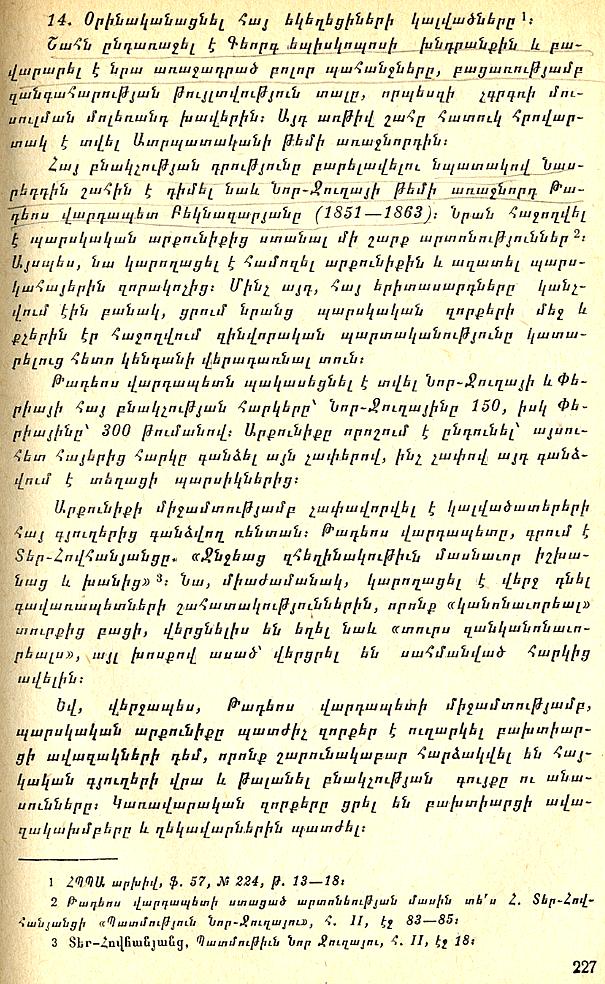 14. Օրինականացնել հայ եկեղեցիների կալվածները ¹։
Շահն ընդառաջել է Գեորգ եպիսկոպոսի խնդրանքին և բա-
վարարել է նրա առաջադրած բոլոր պահանջները, բացառությամբ
զանգահարության թույլտվություն տալը, որպեսզի չգրգռի մու-
սուլման մոլեռանդ խավերին։ Այդ առթիվ շահը հատուկ հրովար-
տակ է տվել Ատրպատականի թեմի առաջնորդին։
Հայ բնակչության դրությունը բարելավելու նպատակով Նաս-
րեդդին շահին է դիմել նաև Նոր-Ջուղայի թեմի առաջնորդ Թա-
դեոս վարդապետ Բեկնազարյանը (1851—1863)։ Նրան հաջողվել
է պարսկական արքունիքից ստանալ մի շարք արտոնություններ ²։
Այսպես, նա կարողացել է համոզել արքունիքին և ազատել պարս-
կահայերին զորակոչից։ Մինչ այդ, հայ երիտասարդները կանչ-
վում էին բանակ, ցրում նրանց պարսկական զորքերի մեջ և
քչերին էր հաջողվում զինվորական պարտականությունը կատա-
րելուց հետո կենդանի վերադառնալ տուն։
Թադեոս վարդապետն պակասեցնել է տվել Նոր-Ջուղայի և Փե-
րիայի հայ բնակչության հարկերը՝ Նոր-Ջուղայինը 150, իսկ Փե-
րիայինը՝ 300 թումանով։ Արքունիքը որոշում է ընդունել՝ այսու-
հետ հայերից հարկը գանձել այն չափերով, ինչ չափով այդ գանձ-
վում է տեղացի պարսիկներից։
Արքունիքի միջամտությամբ չափավորվել է կալվածատերերի
հայ գյուղերից գանձվող ռենտան։ Թադեոս վարդապետը, գրում է
Տեր-Հովհանյանցը. «Ջնջեաց զհեղինակութիւն մասնաւոր իշխա-
նաց և խանից» ³։ Նա, միաժամանակ, կարողացել է վերջ դնել
գավառապետների շահատակություններին, որոնք «կանոնաւորեալ»
տուրքից բացի, վերցնելիս են եղել նաև «տուրս զանկանոնաւո-
րեալս», այլ խոսքով ասած՝ վերցրել են սահմանված հարկից
ավելին։
Եվ, վերջապես, Թադեոս վարդապետի միջամտությամբ,
պարսկական արքունիքը պատժիչ զորքեր է ուղարկել բախտիար-
ցի ավազակների դեմ, որոնք շարունակաբար հարձակվել են հայ-
կական գյուղերի վրա և թալանել բնակչության գույքը ու անա-
սունները։ Կառավարական զորքերը ցրել են բախտիարցի ավա-
զակախմբերը և ղեկավարներին պատժել։
1 ՀՊՊԱ արխիվ, ֆ. 57, № 224, թ. 13—18։
2 Թադեոս վարդապետի ստացած արտոնության մասին տե՛ս Հ. Տեր-Հով-
հանյանցի «Պատմություն Նոր-Ջուղայու», հ. II, էջ 83—85։
3 Տեր-Հովհանյանց, Պատմութիւն Նոր Ջուղայու, հ. II, էջ 18։
227